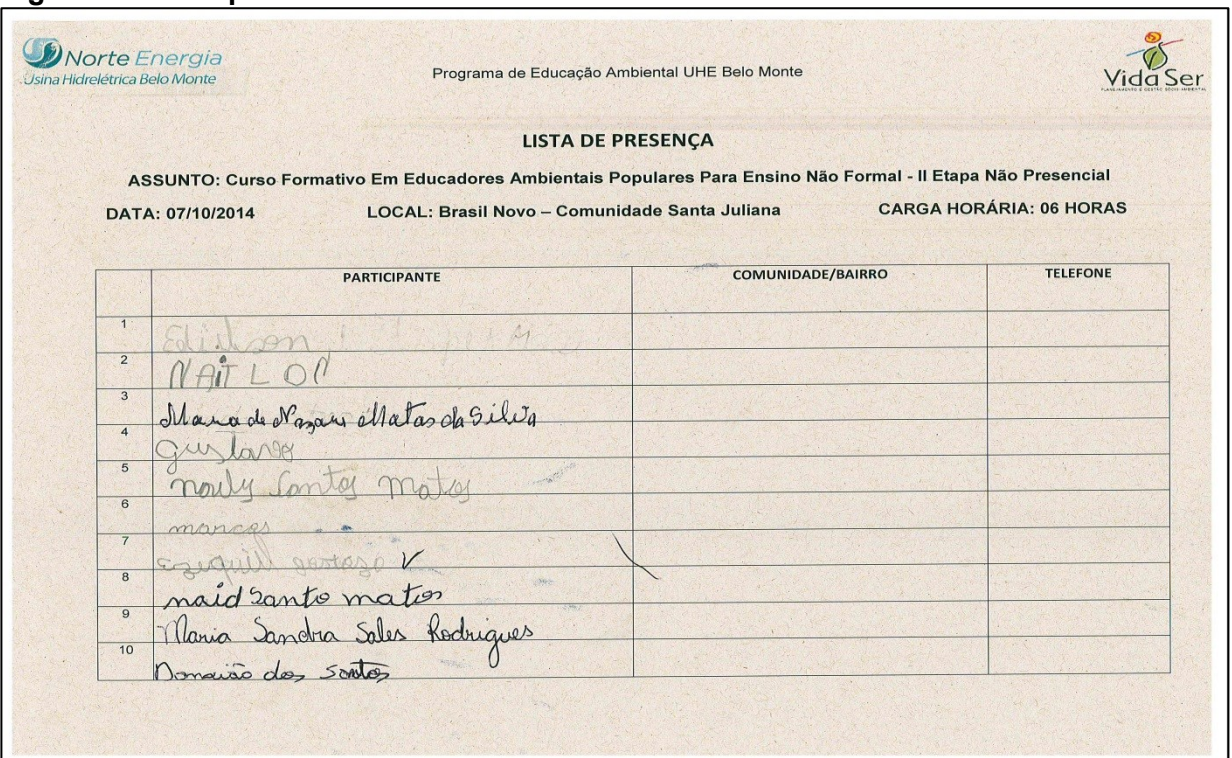 Norte Energia
Usina Hidrelétrica Belo Monte
Programa de Educação Ambiental UHE Belo Monte
Vida Ser
LISTA DE PRESENÇA
ASSUNTO: Curso Formativo Em Educadores Ambientais Populares Para Ensino Não Formal - II Etapa Não Presencial
DATA: 07/10/2014 LOCAL: Brasil Novo – Comunidade Santa Juliana CARGA HORÁRIA: 06 HORAS
PARTICIPANTE COMUNIDADE/BAIRRO TELEFONE
1 Edilson
2 NAiTLON
3 Maria de Nazare Matas da Silva
4 gustavo
5 Santos matos
6 marcos
7
8 naid Santo matos
9 Maria Sandra Sales Rodrigues
10 dos santos